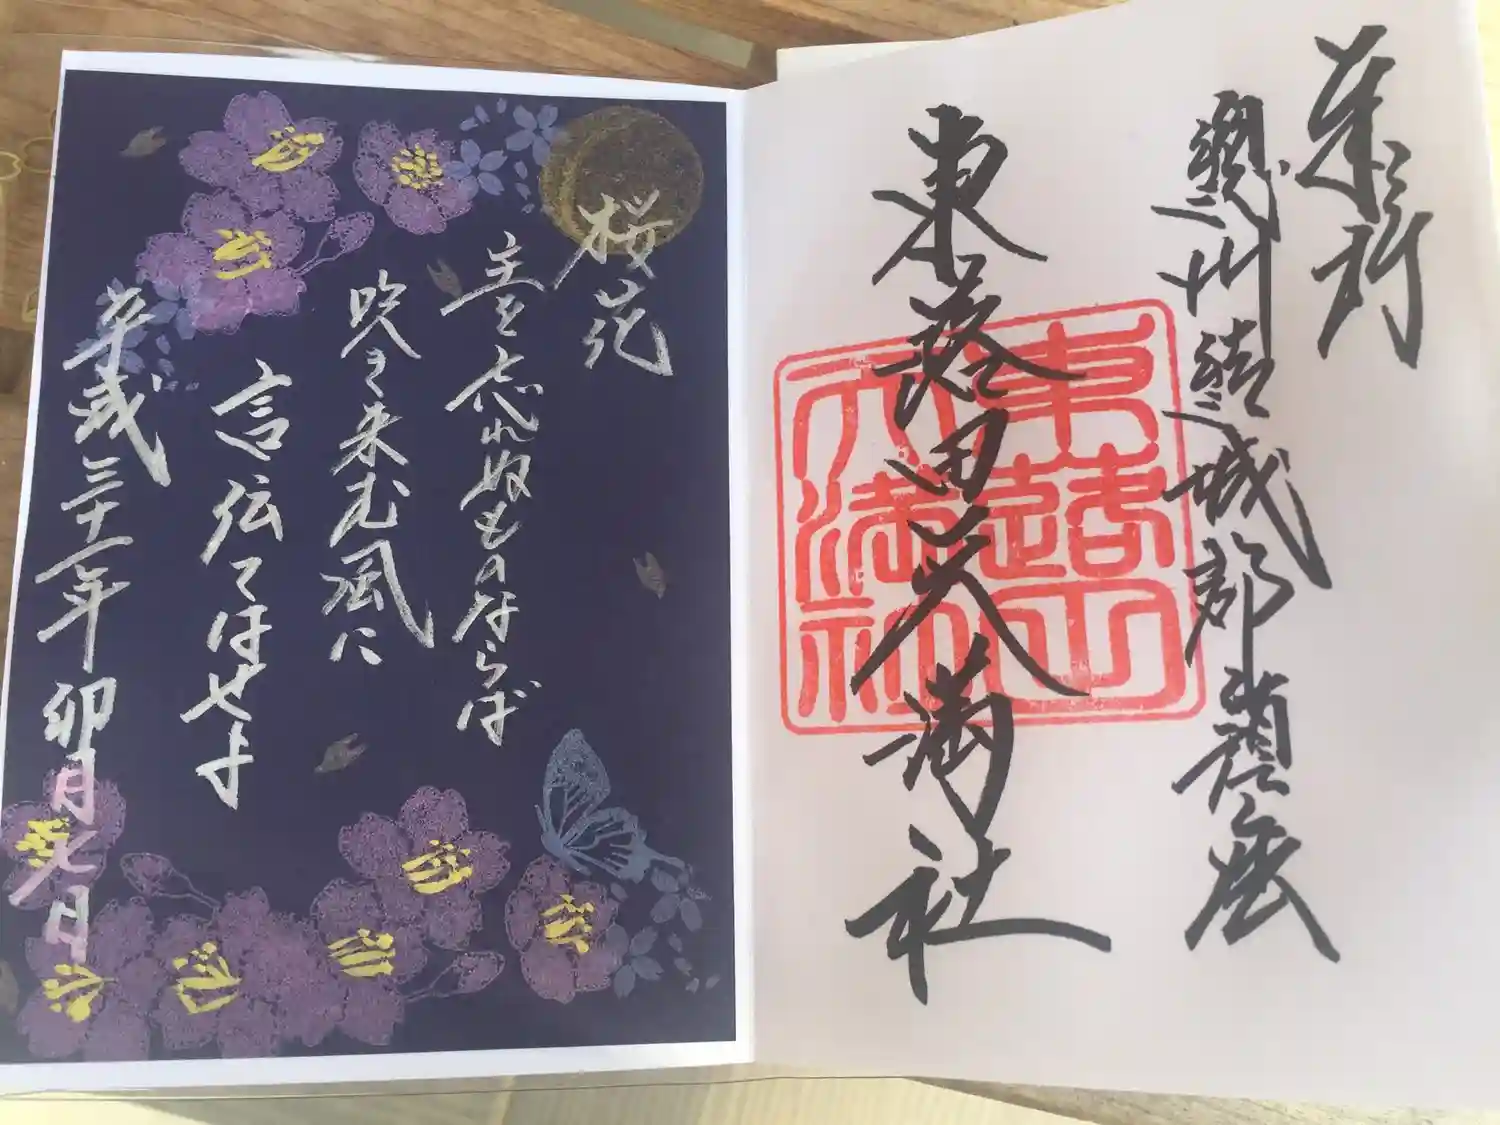 奉拝
總州結城郡鎮座
東蕗田天満社
桜花
主を忘れぬものならば
吹き来む風に
言伝てはせよ
平成三十一年卯月七日